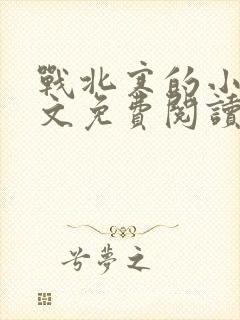 戰北寒的小
文免費閱讀
兮夢之